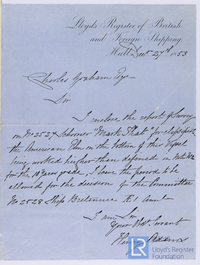 Lloyd's Register of British
and Foreign Shipping,
Hull Decr 27th 1853
Charles Graham Esqr
Sir
I enclose the report of Survey
on No 2527 Schooner "Mark That" for
the American Elm on the bottom of this Vessel
being worked higher than defined in
for the 10 years grade, I leave the period to be
allowed for the decision of the Committee
No 2528 Ship
I am Sir
Your Obt Servant
LR
Lloyd's Register
Foundation